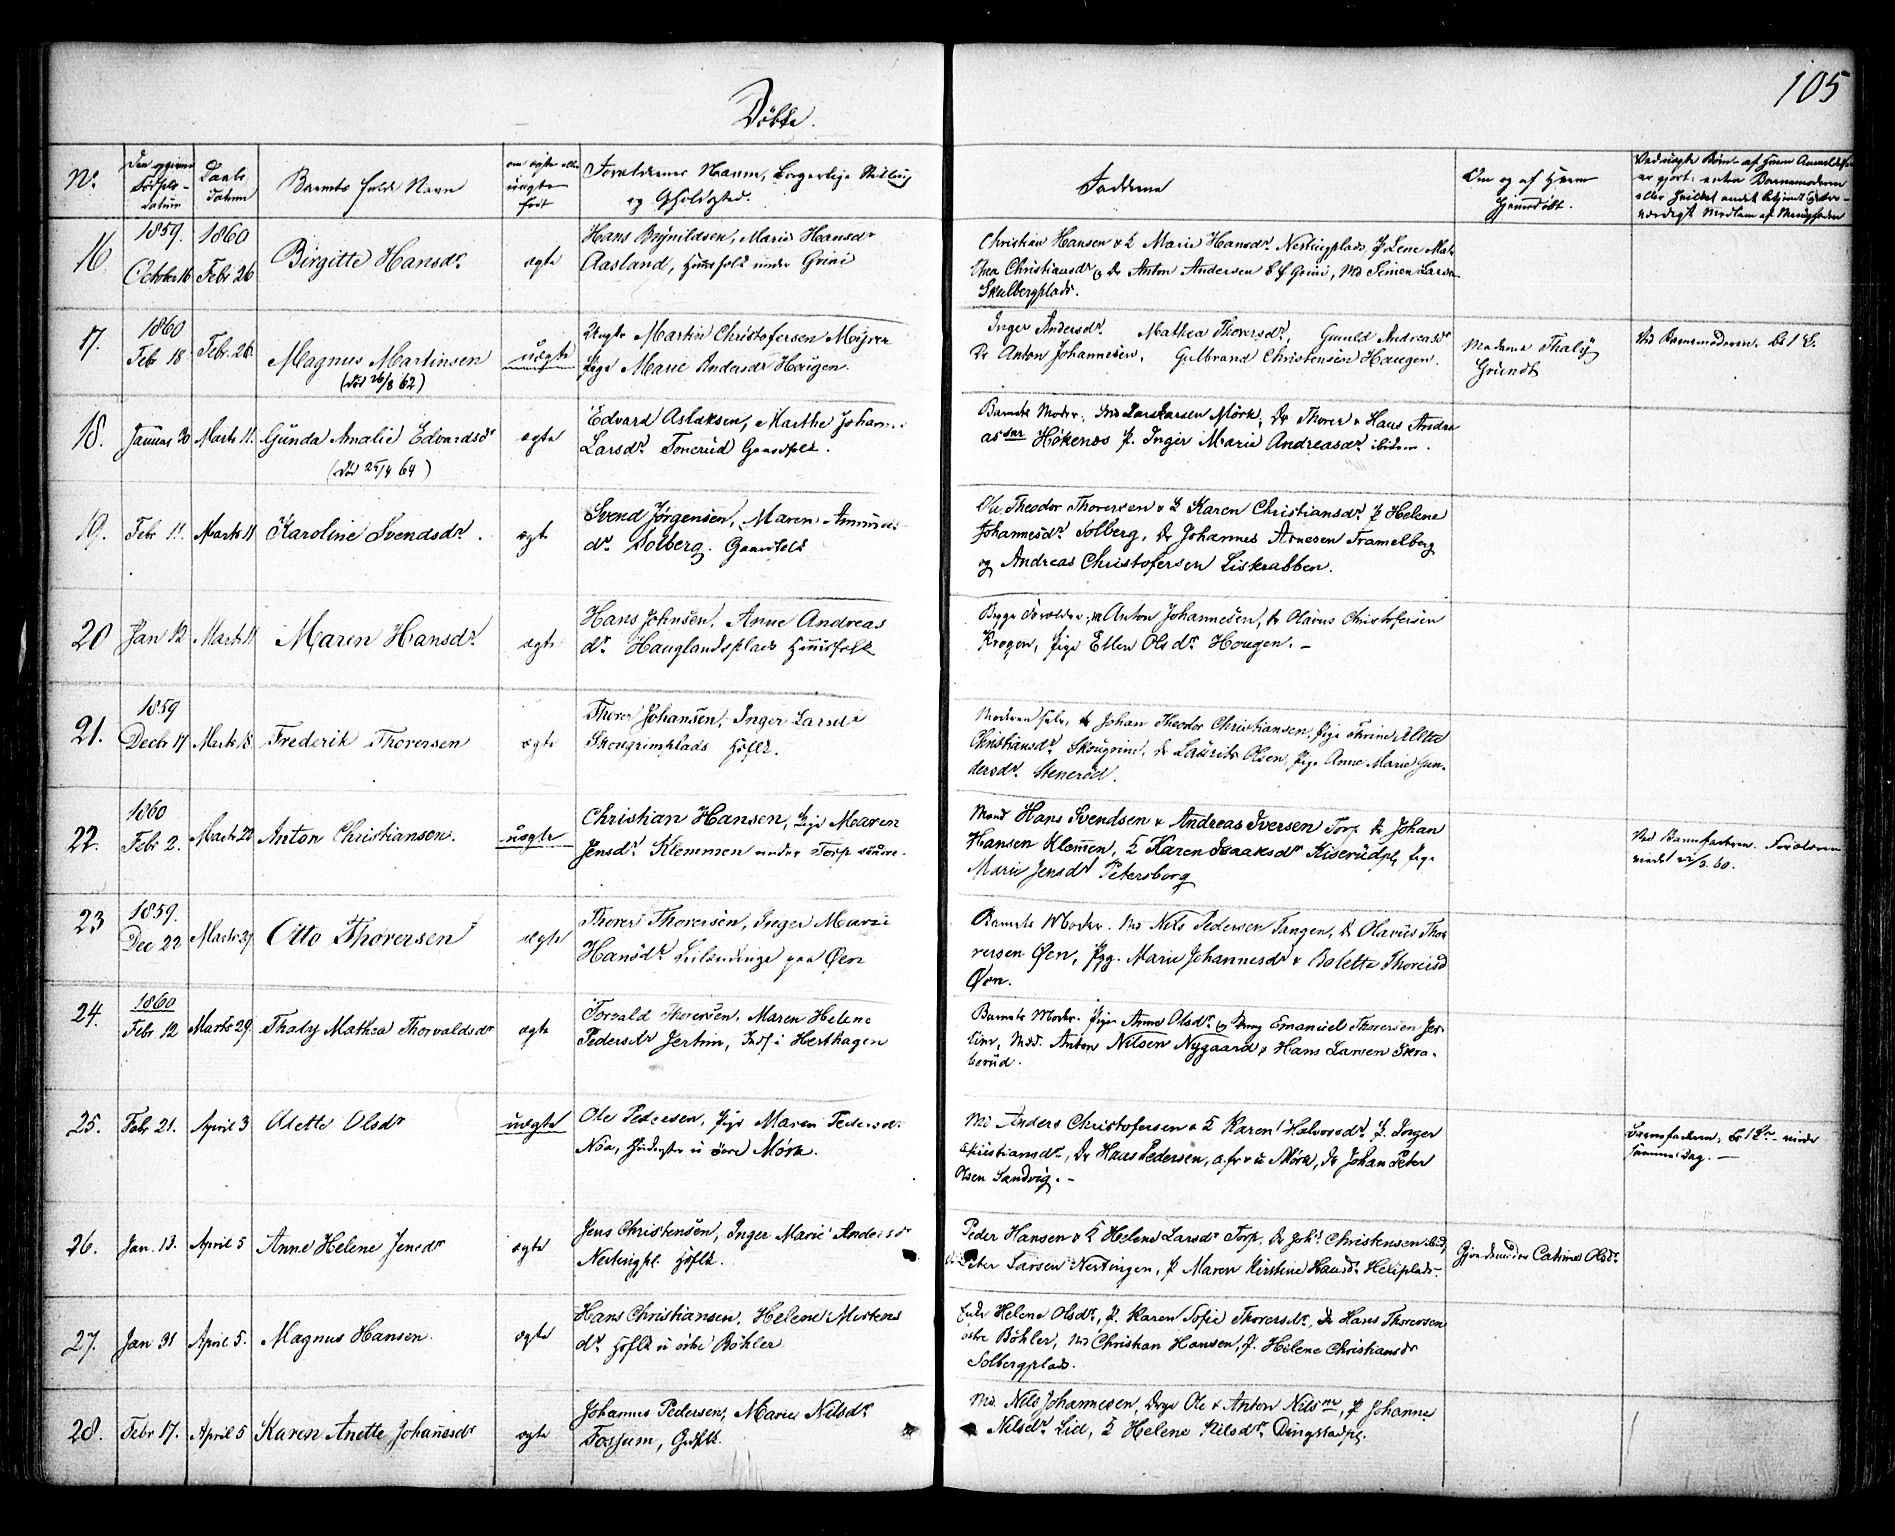 105
Döbte.
No.
Döbte Datum
Barnets fulde Navn
Forældrenes Navn, Borgerlige Stilling
og Opholdssted.
Fadderne
Om og af Hvem
Hjemmedöbt.
16
1859.
October 16
1860
Febr 26
Birgitte Hansdr
ægte
Hans Brynildsen, Marie Hansdr
Aasland, Huusfolk under Grini
Christian Hansen & K Marie Hansdr Nestingplads, P Lene Mat-
thea Christiansdr, Dr Anton Andersen Grini, Md Simen Larsen
Skulbergplads.
17.
1860
Feb 18
Feb. 26
Magnus Martinsen
(död 26/8 62)
uægte
Ungk Martin Christofersen Möyer
Pige Marie Andersdr Haugen.
Inger Andersdr Mathea Thorersdr, Gunild Andreasdr
Dr Anton Johannesen, Gulbrand Christensen Haugen.
Madame Thaly
Gründt
Ved Barnemoderen.
18.
Januar 30
Marts 11.
Gunda Amalie Edvardsdr
(död 25/4 64)
ægte
Edvard Aslaksen, Marthe Johanne
Larsdr Tonerud Gaardfolk.
Barnets Moder. Md Lars Larsen Mörk, Dr Thorer & Hans Andre-
assnr Høkenæs P. Inger Marie Andreasdr ibidem.
19.
Febr 11.
Marts 11
Karoline Svendsdr.
ægte
Svend Jørgensen, Maren Amunds-
dr Solberg. Gaardfolk
Ole Theodor Thorersen & K Karen Christiansdr P Helene
Johannesdr Solberg, Dr Johannes Arnesen Tramelberg
og Andreas Christofersen Liskrabben.
20
Jan 12
Marts 11
Maren Hansdr
ægte
Hans Johnsen, Anne Andreas
dr Hauglandsplads Huusfolk
Begge Forældre, Anton Johannesen, Dr Olavus Christofersen
Krogen, Pige Ellen Olsdr Hougen. –
21.
1859
Decbr 17
Marts 18
Frederik Thorersen
ægte
Thorer Johansen, Inger Larsdr
Skougrimplads Hflk.
Moderen selv, Dr Johan Theodor Christiansen, Pige Thrine Alette
Christiansdr Skougrim, Dr Laurits Olsen, Pige Anne Marie Gun-
dersdr Stenerud.
22.
1860
Febr 2.
Marts 22
Anton Christiansen.
uægte
Christian Hansen, Pige Maren
Jensdr Klemmen under Torp søndre.
Mænd Hans Svendsen & Andreas Iversen Torp Dr Johan
Hansen Klemen, K Karen Isaaksdr Kiserudpl Pige
Marie Jensdr Petersborg
Ved Barnefaderen. Forældrene
viedes 22/3 60.
23
1859.
Dec 22
Marts 29
Otto Thorersen
ægte
Thorer Thorersen, Inger Marie
Hansdr Leilendinge paa Øen
Barnets Moder. Md Nils Pedersen Tangen, Dr Olavus Tho-
rersen Øen, Pgg. Marie Johannesdr & Bolette Thorersd
Øen.
24.
1860
Febr 12
Marts 29.
Thaly Mathea Thorvaldsdr
ægte
Torvald Thorersen, Maren Helene
Pedersdr Jertim, Indf i Herthagen
Barnets Moder. Pige Anne Olsdr og Emanuel Thorersen Jer-
tim, Md. Anton Nilsen Nygaard & Hans Larsen Skra-
berud.
25.
Febr 21.
April 3
Alette Olsdr
uægte
Ole Pedersen, Pige Maren Pedersdr
Nöa, i övre Mörk.
Md Anders Christofersen & K Karen Halvorsdr P. Inger
Christiansdr, Dr Hans Pedersen, Mörk, Dr Johan Peter
Olsen Sandvig. –
Barnefaderen,
samme Dag. –
26.
Jan. 13.
April 5
Anne Helene Jensdr
ægte
Jens Christensen, Inger Marie Andersdr
Nestingpl. Hflk.
Peder Hansen & K Helene Larsdr Torp, Dr Johs Christensen ibid,
Dr Peter Larsen Nestingen, P Maren Kirstine Hansdr Heliplads.
Gjordemoder Catrine Olsdr
27.
Jan 31
April 5.
Magnus Hansen.
ægte
Hans Christiansen, Helene Mortens
dr Hflk i östre Böhler
Enke Helene Olsdr, P. Karen Sofie Thorersdr, Dr Hans Thorersen
östre Böhler, Md Christian Hansen, P. Helene Christiansdr
Solbergplads.
28.
Febr 17.
April 5
Karen Anette Johanesdr
ægte
Johannes Pedersen, Marie Nilsdr
Fossum, Gdflk.
Md. Nils Johannesen, Drge Ole & Anton Nilsne, P Johanne
Nilsdr Lid, K Helene Nilsdr Dingstadpl.